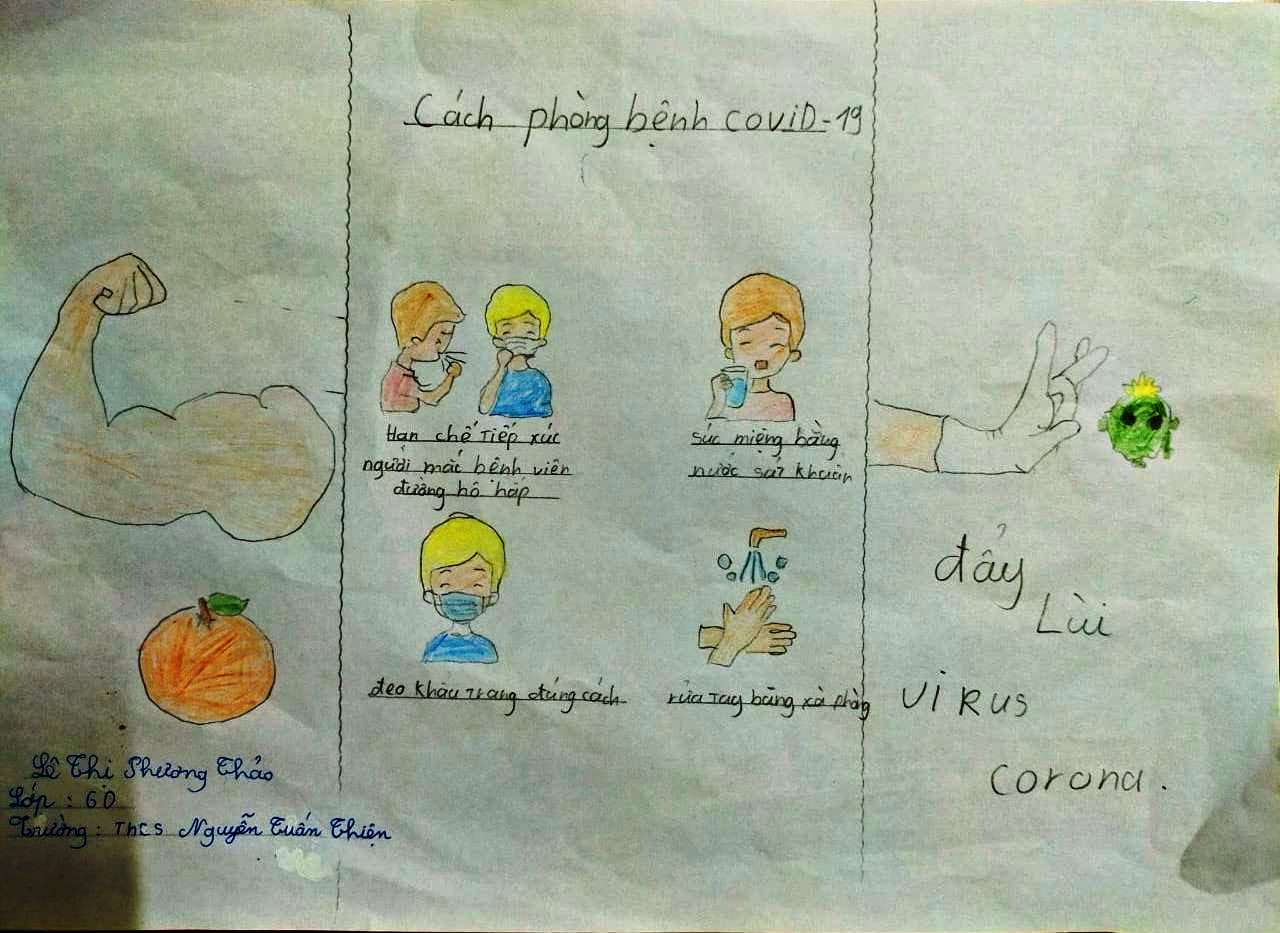 Cách phòng bệnh COVID-19
Hạn chế tiếp xúc
người mắc bệnh viên
đường hô hấp
súc miệng bằng
nước sát khuẩn
đeo khẩu trang đúng cách
rửa tay bằng xà phòng
đẩy
Lùi
VIRUS
corona.
Lê Thị Phương Thảo
Lớp : 6D
Trường : THCS Nguyễn Tuấn Thiện